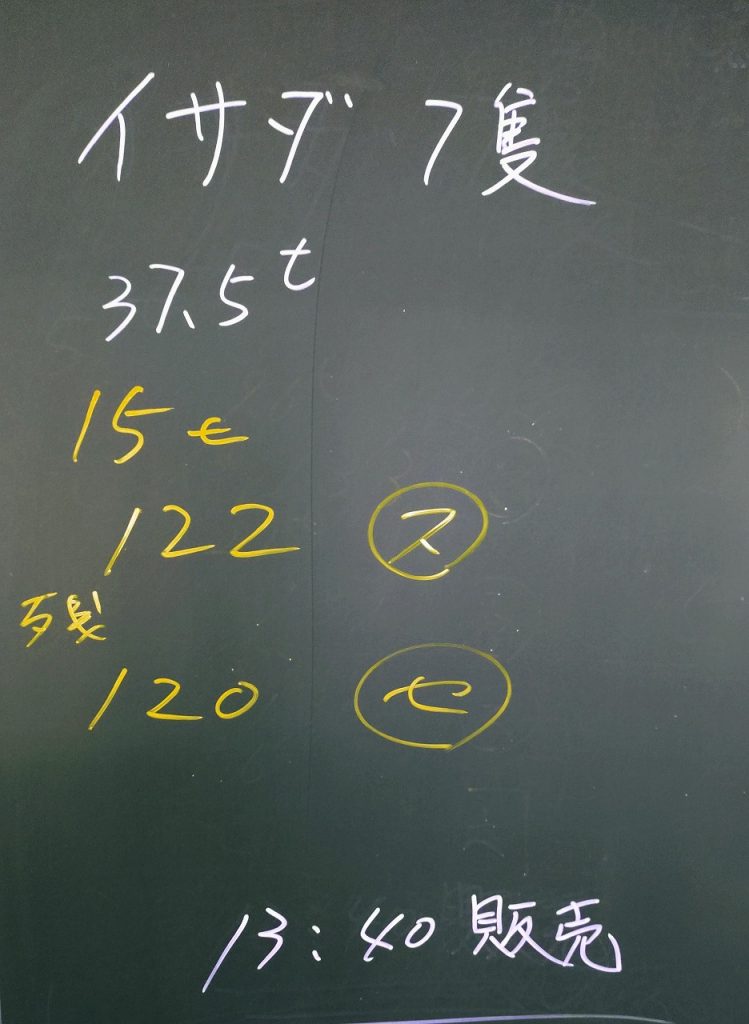 イサダ 7隻
37.5t
15t
122 ㋜
残
120 ㋝
13:40 販売